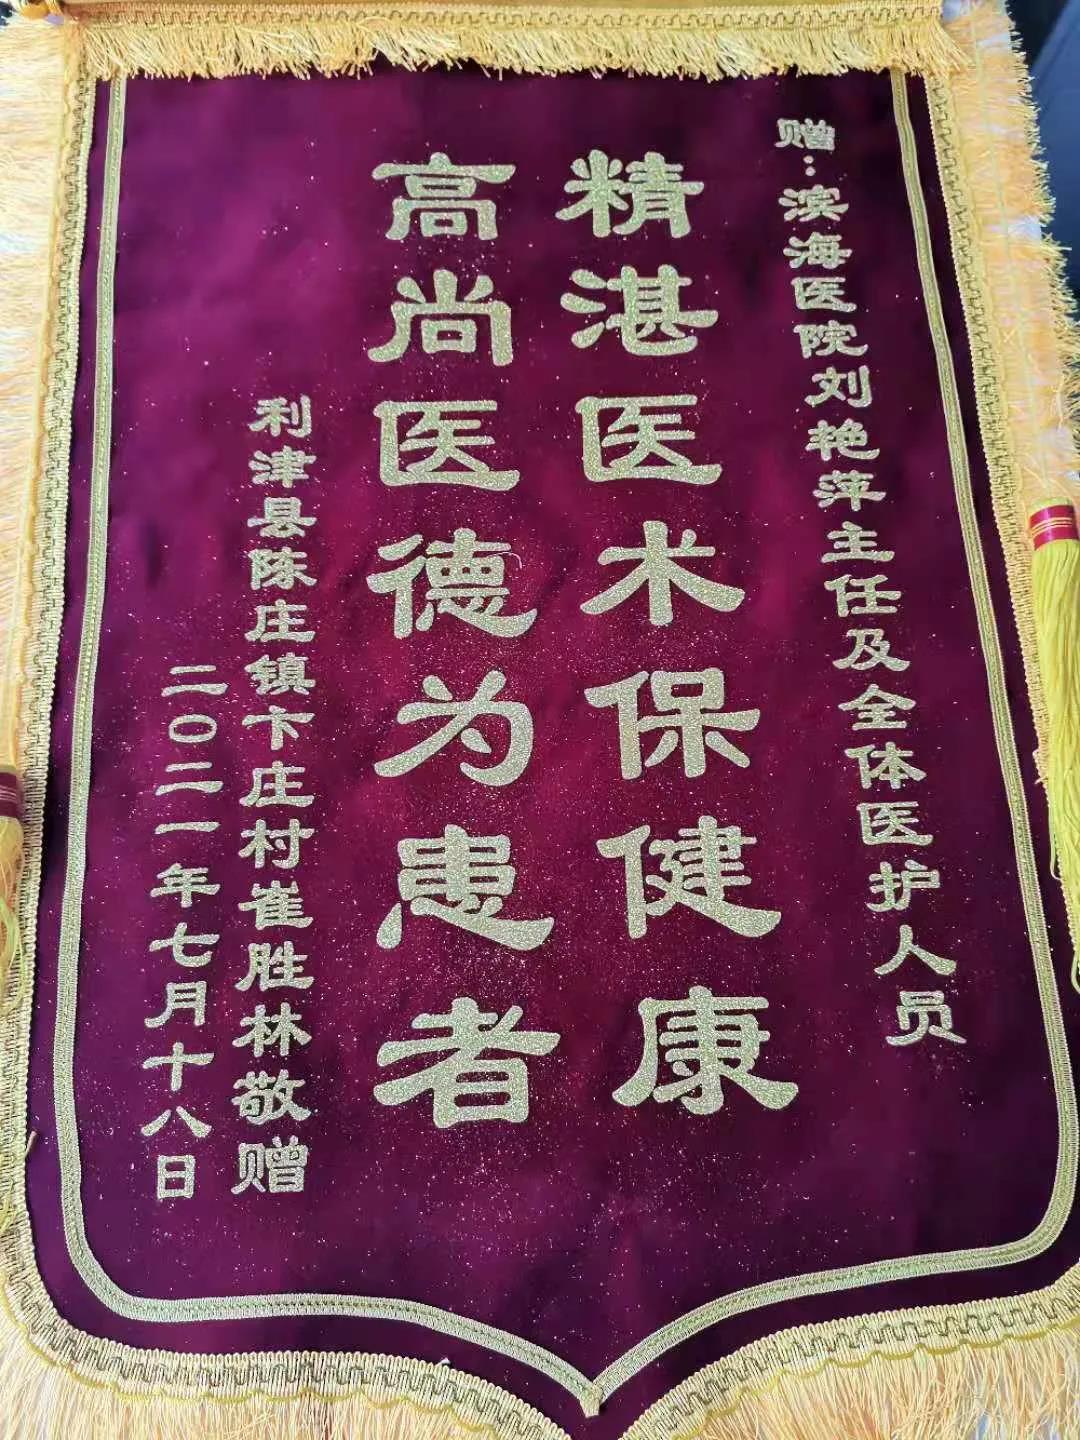 赠：滨海医院刘艳萍主任及全体医护人员
精湛医术保健康
高尚医德为患者
利津县陈庄镇卞庄村崔胜林敬赠
二〇二一年七月十八日